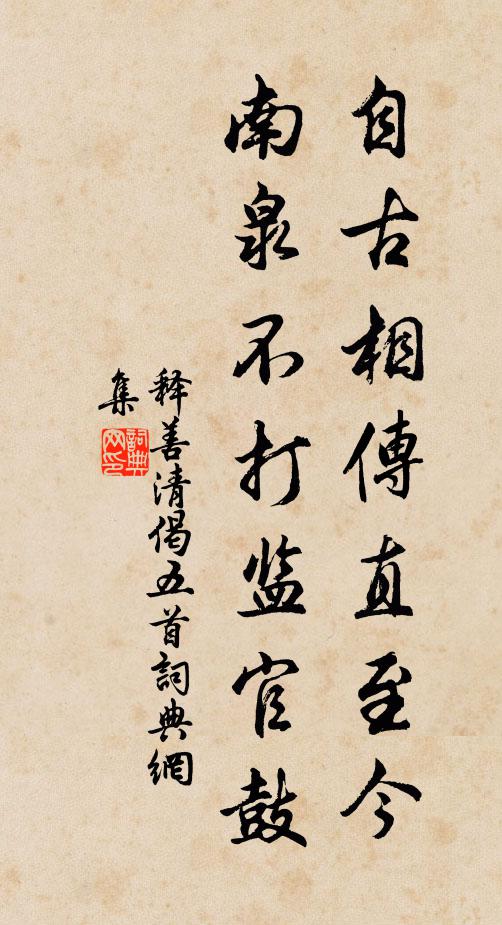 自古相傳直至今
南泉不打监官鼓
释善清偈五首詞典網
集
詞典
网印